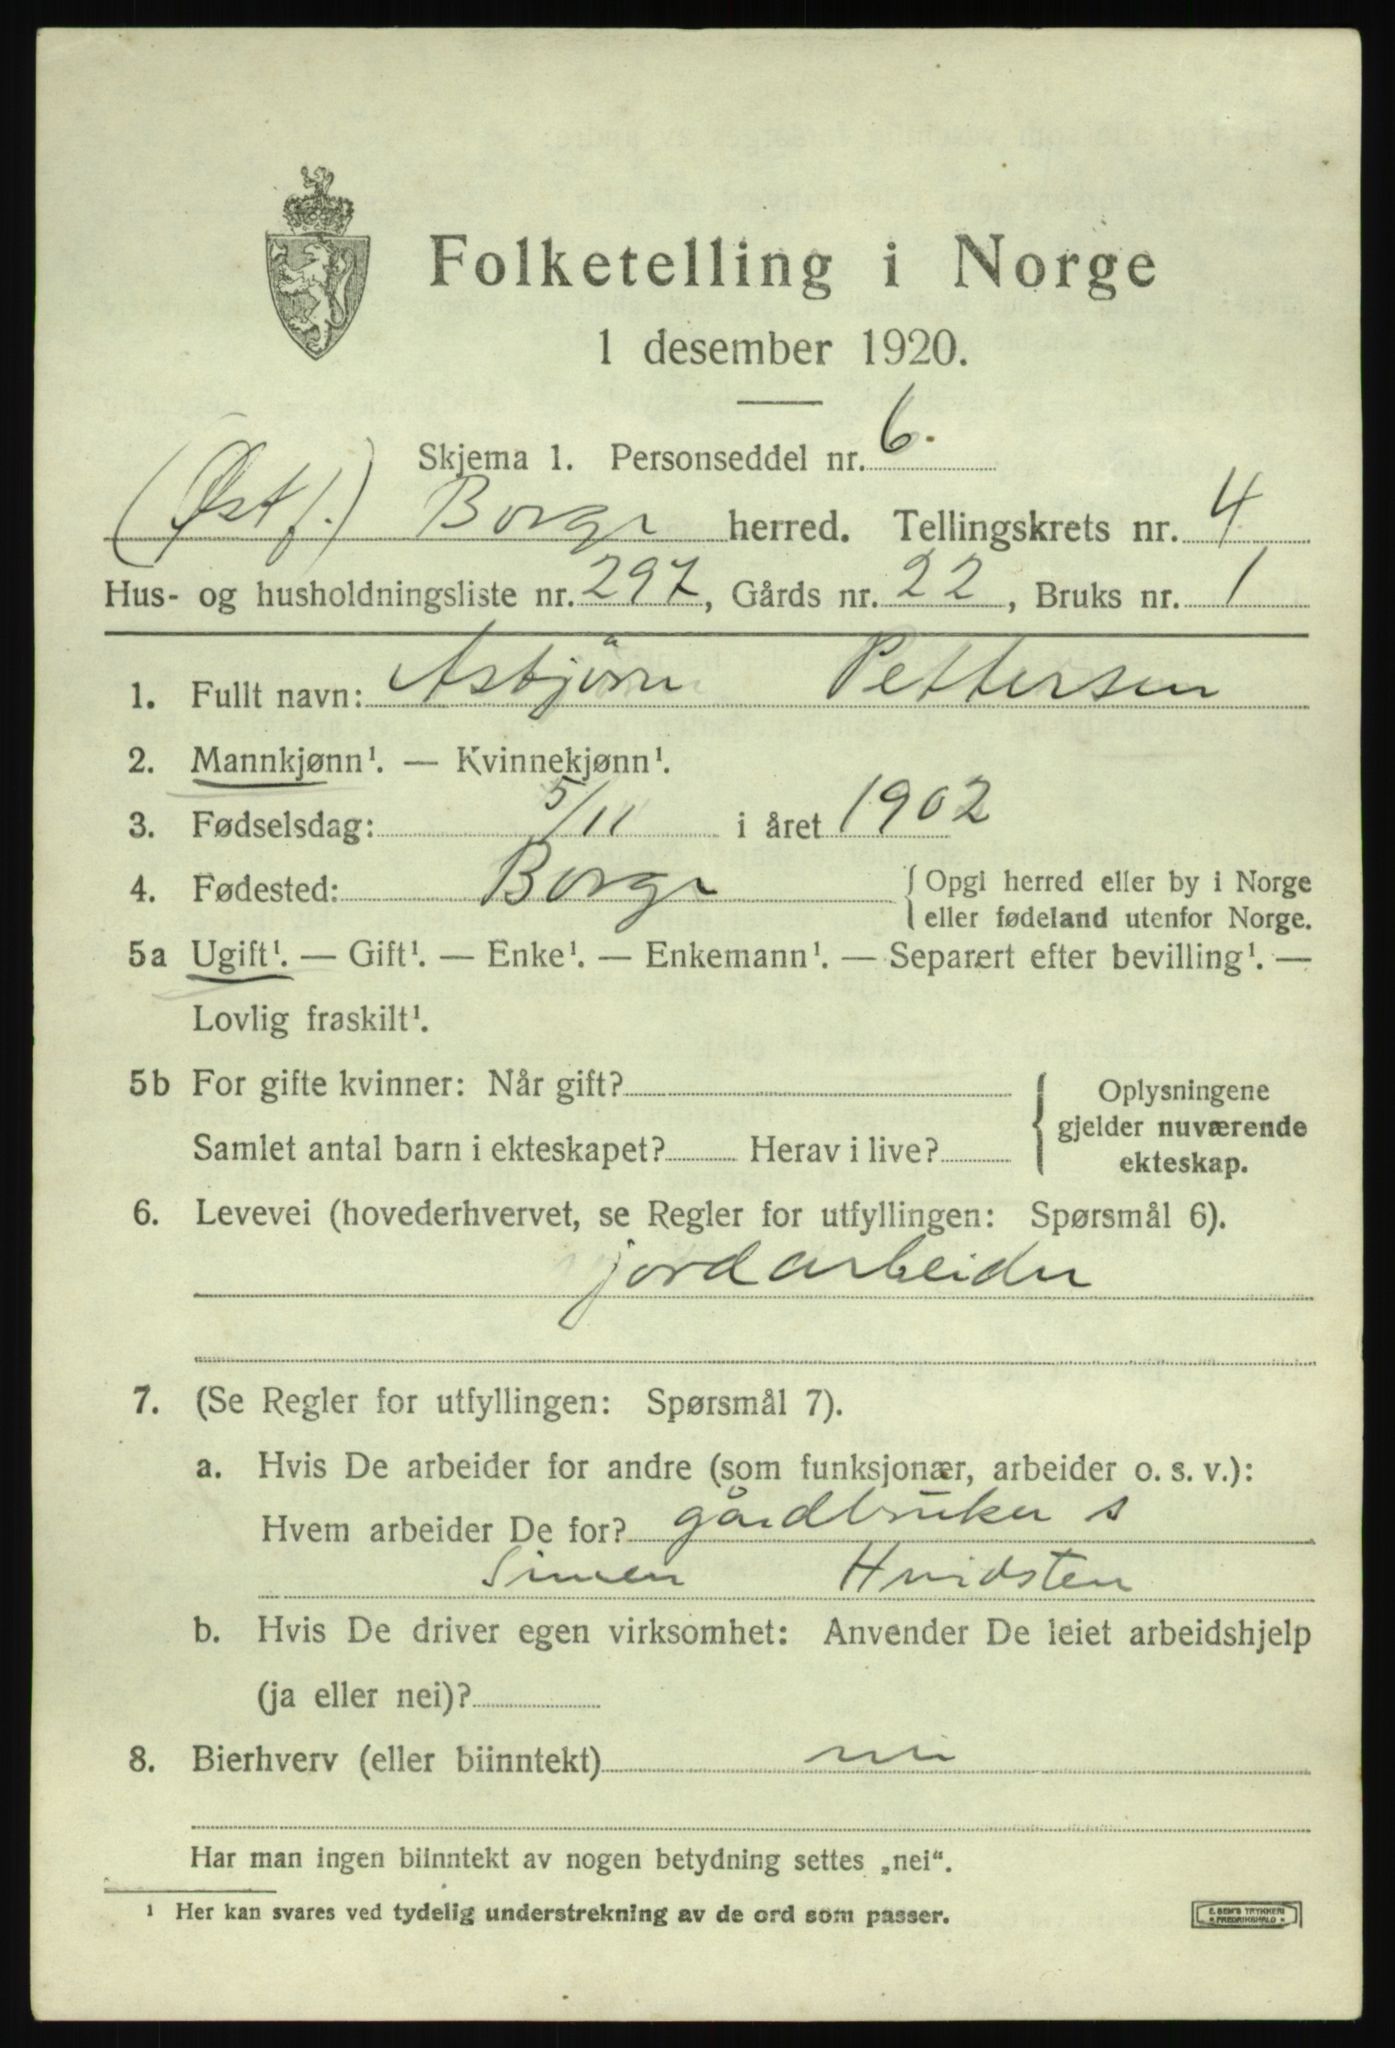 Folketelling i Norge
1 desember 1920.
Skjema 1. Personseddel nr. 6.
(Østf.) Borge herred. Tellingskrets nr. 4
Hus- og husholdningsliste nr. 297, Gårds nr. 22, Bruks nr. 1
1. Fullt navn: Asbjørn Pettersen
2. Mannkjønn¹. — Kvinnekjønn¹.
3. Fødselsdag: 5/11 i året 1902
4. Fødested: Borge { Opgi herred eller by i Norge
eller fødeland utenfor Norge.
5a Ugift¹. — Gift¹. — Enke¹. — Enkemann¹. — Separert efter bevilling¹. —
Lovlig fraskilt¹.
5b For gifte kvinner: Når gift?
Samlet antal barn i ekteskapet? Herav i live?
Oplysningene
gjelder nuværende
ekteskap.
6. Levevei (hovederhvervet, se Regler for utfyllingen: Spørsmål 6).
jordarbeider
7. (Se Regler for utfyllingen: Spørsmål 7).
a. Hvis De arbeider for andre (som funksjonær, arbeider o. s. v.):
Hvem arbeider De for? gårdbruker s
Simen Hvidsten
b. Hvis De driver egen virksomhet: Anvender De leiet arbeidshjelp
(ja eller nei)?
8. Bierhverv (eller biinntekt) nei
Har man ingen biinntekt av nogen betydning settes „nei“.
¹ Her kan svares ved tydelig understrekning av de ord som passer.
E. SEM'S TRYKKERI
FREDRIKSHALD